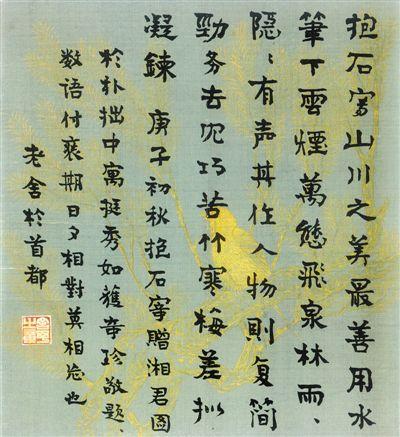 抱石寫山川之美最善用水
筆下雲煙萬態飛泉林雨、
隱、有声其作人物則复简
勁务去巧苦竹寒梅差拟
凝鍊 庚子初秋抱石贈湘君圖
於朴拙中寓挺秀如獲奇珍敬题、
数語付期日夕相對莫相忘也
老舍於首都